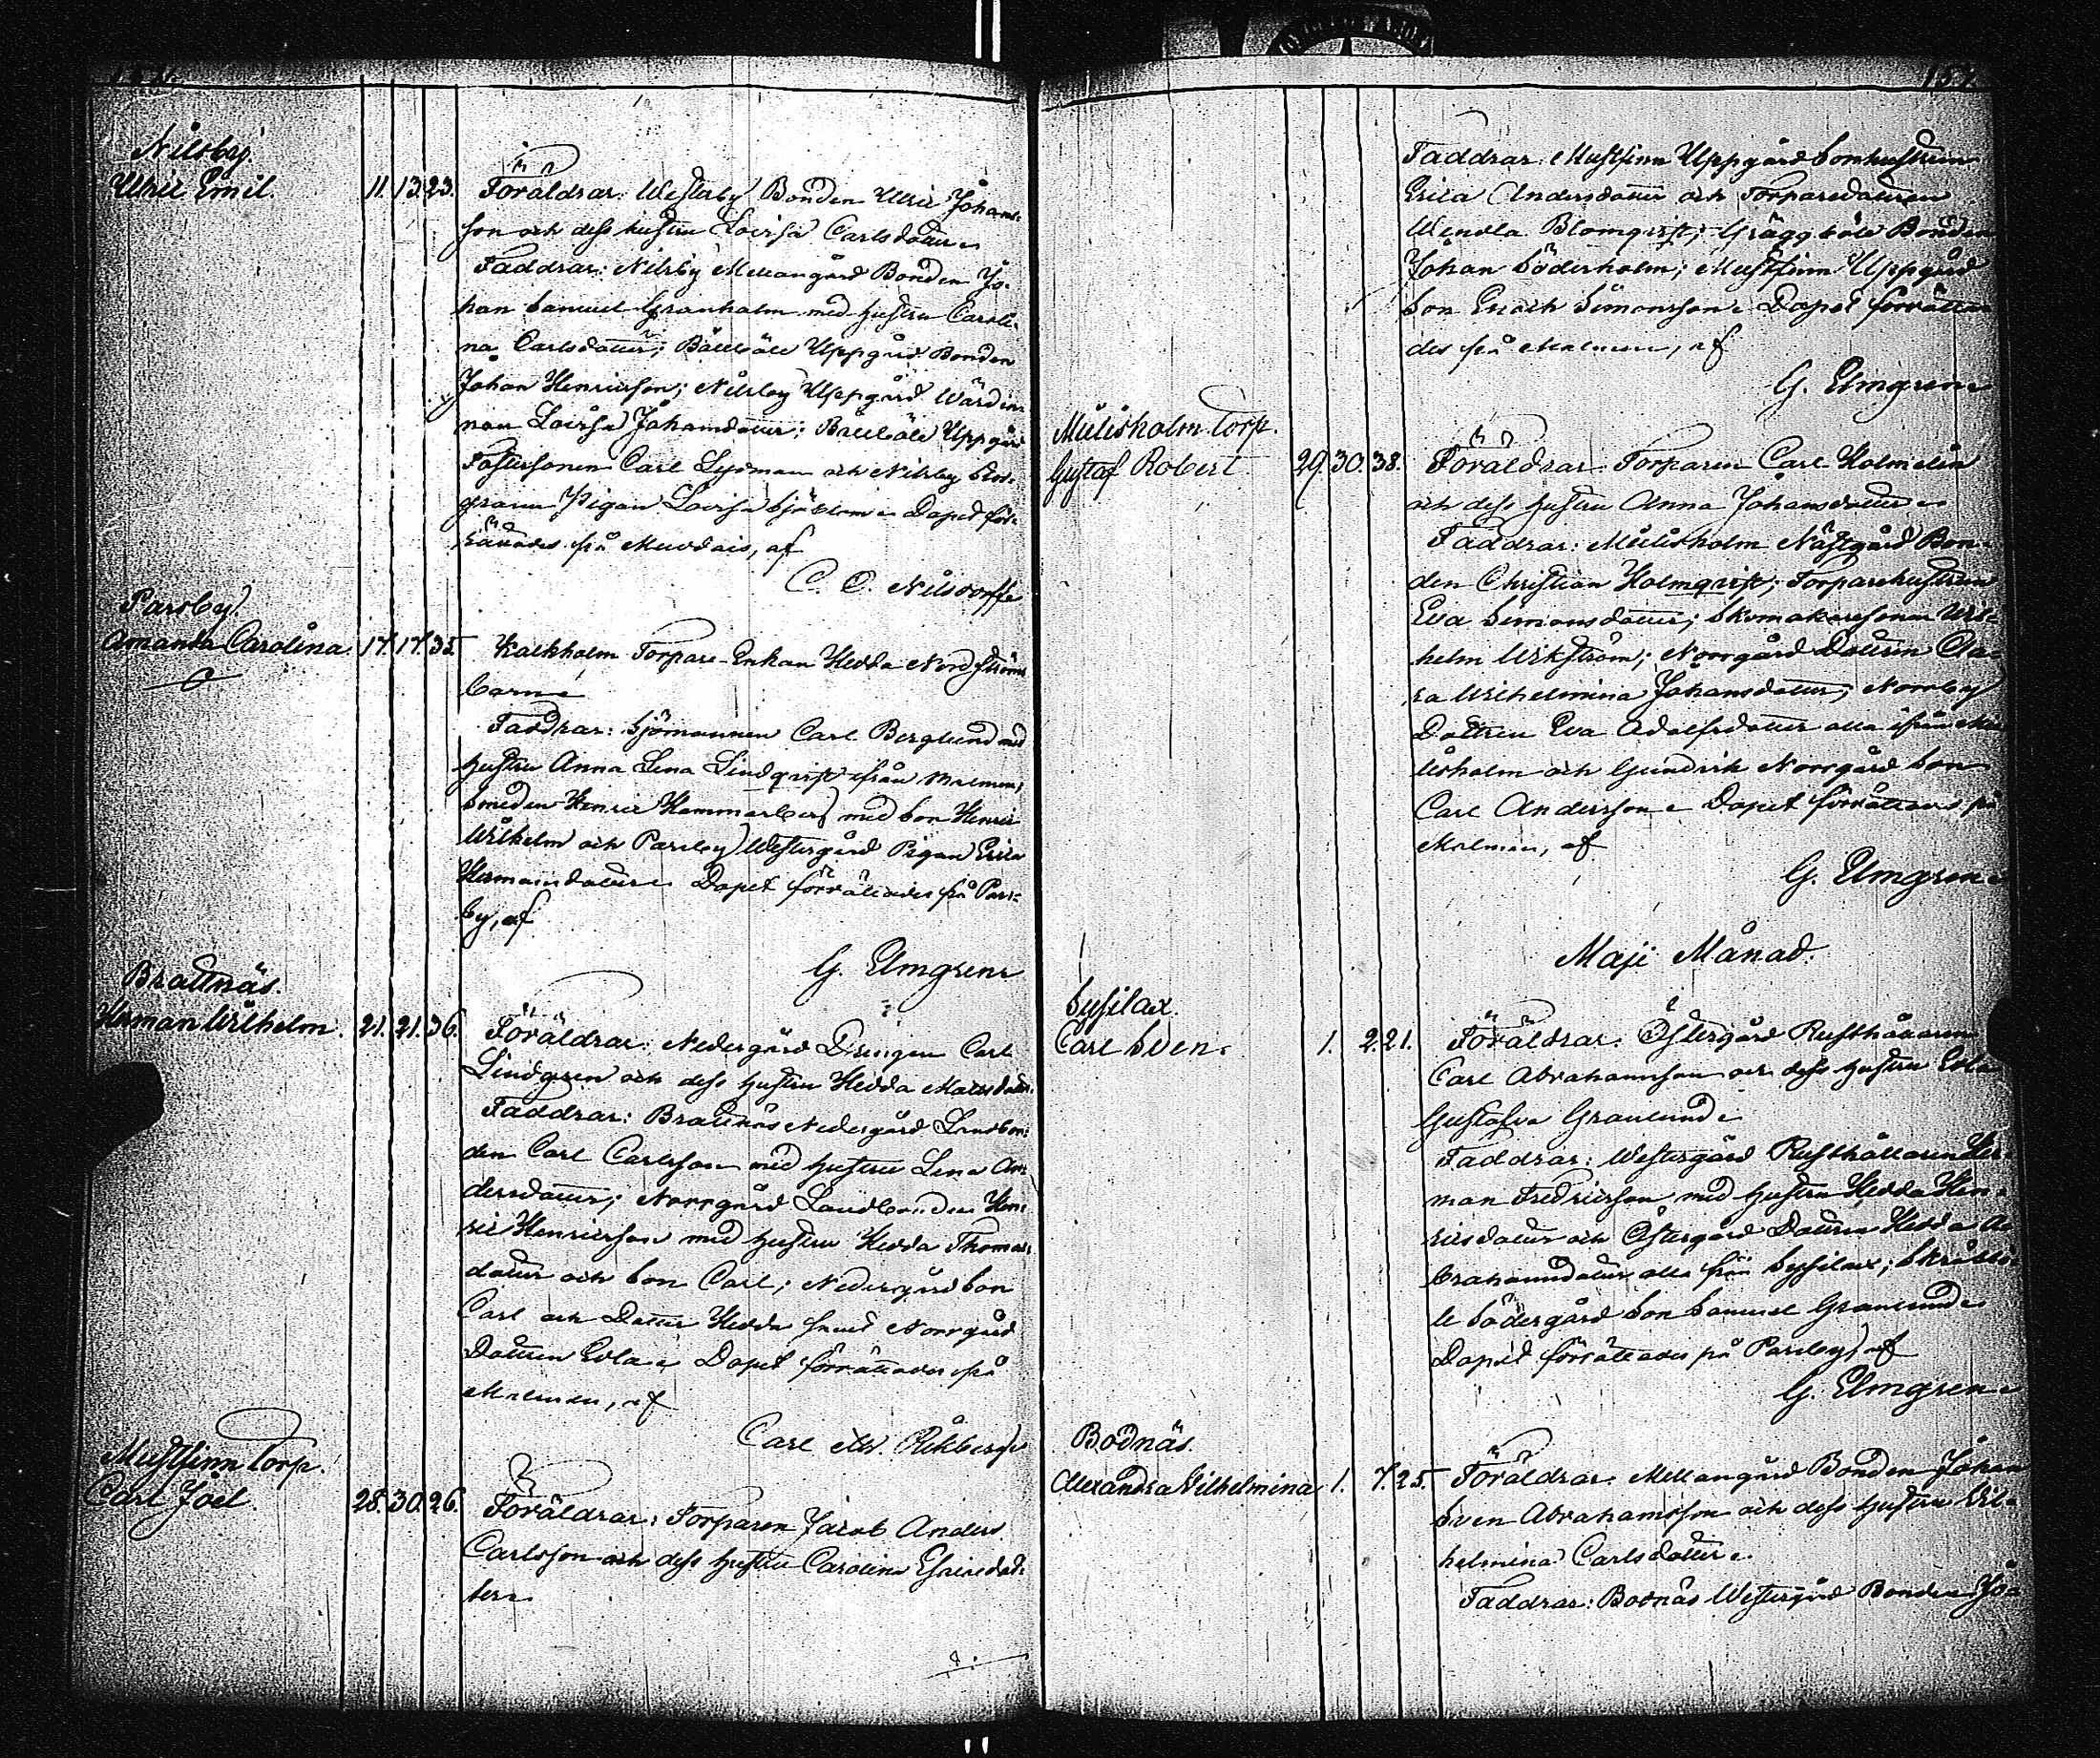 Nilsby.
Ulric Emil. 11. 13. 23. Föräldrar: Westerby Bonden Ulric Johans-
son och dess hustru Lovisa Carlsdotter
Faddrar: Nilsby Mellangård Bonden Jo-
han Samuel Granholm med hustru Caroli-
na Carlsdotter; Bålböle Uppgård Bonden
Johan Henricsson; Nilsby Uppgård Wärdin-
nan Lovisa Johansdotter; Bålböle Uppgård
Fostersonen Carl Lydman och Nilsby
Pigan Lovisa Sjöblom. Dopet för-
rättades på af
C. O. Nilsdorff
Parsby.
Amanda Carolina. 17. 17. 35. Kalkholm Torpare-Enkan Hedda Nordströms
barn
Faddrar: Sjömannen Carl Berglund med
hustru Anna Lena Lindqvist ifrån Malmen,
Smeden Henric Hammarberg med Son Henric
Wilhelm och Parsby Westergård Pigan Erica
Hermansdotter. Dopet förrättades på Pars-
by, af
G. Elmgren
Brattnäs.
Herman Wilhelm. 21. 21. 36. Föräldrar: Nedergård Drengen Carl
Lindgren och dess hustru Hedda Matsdotter.
Faddrar: Brattnäs Nedergård Landbon-
den Carl Carlsson med hustru Lena An-
dersdotter; Norrgård Landbonden Hen-
ric Henricsson med hustru Hedda Thomas-
dotter och Son Carl; Nedergård Son
Carl och Dotter Hedda samt Norrgård
Dottren Edla. Dopet förrättades på
Malmen, af
Carl M. Råbergh
Mustfinn Torp.
Carl Joel. 28. 30. 26. Föräldrar: Torparen Jacob Anders
Carlsson och dess hustru Carolina Ericsdot-
ter
157.
Faddrar: Mustfinn Uppgård Sonhustrun
Erica Andersdotter och Torparedottren
Wendla Blomqvist; Gräggböle Bonden
Johan Söderholm; Mustfinn Uppgård
Son Enoch Simonsson. Dopet förrätta-
des på Malmen, af
G. Elmgren
Mielisholm Torp.
Gustaf Robert 29. 30. 38. Föräldrar: Torparen Carl Holmelin
och dess hustru Anna Johansdotter
Faddrar: Mielisholm Nästgård Bon-
den Christian Holmqvist; Torparehustrun
Eva Simonsdotter; Skomakaresonen Wil-
helm Wikström; Norrgård Dottren Cla-
ra Wilhelmina Johansdotter; Norrby
Dottren Eva Adolfsdotter alla ifrån Mie-
lisholm och Gundvik Norrgård Son
Carl Andersson. Dopet förrättades på
Malmen, af
G. Elmgren
Maji Månad.
Sysilax.
Carl Sven. 1. 2. 21. Föräldrar: Östergård Rusthållaren
Carl Abrahamsson och dess hustru Edla
Gustafva Granlund
Faddrar: Westergård Rusthållaren Her-
man Fredricsson med hustru Hedda Hen-
ricsdotter och Östergård Dottren Hedda A-
brahamsdotter alla från Sysilax; Skråbbö-
le Södergård Son Samuel Granlund
Dopet förrättades på Parsby, af
G. Elmgren
Bodnäs.
Alexandra Wilhelmina 1. 7. 25. Föräldrar: Mellangård Bonden Johan
Sven Abrahamsson och dess hustru Wil-
helmina Carlsdotter.
Faddrar: Bodnäs Westergård Bonden Jo-